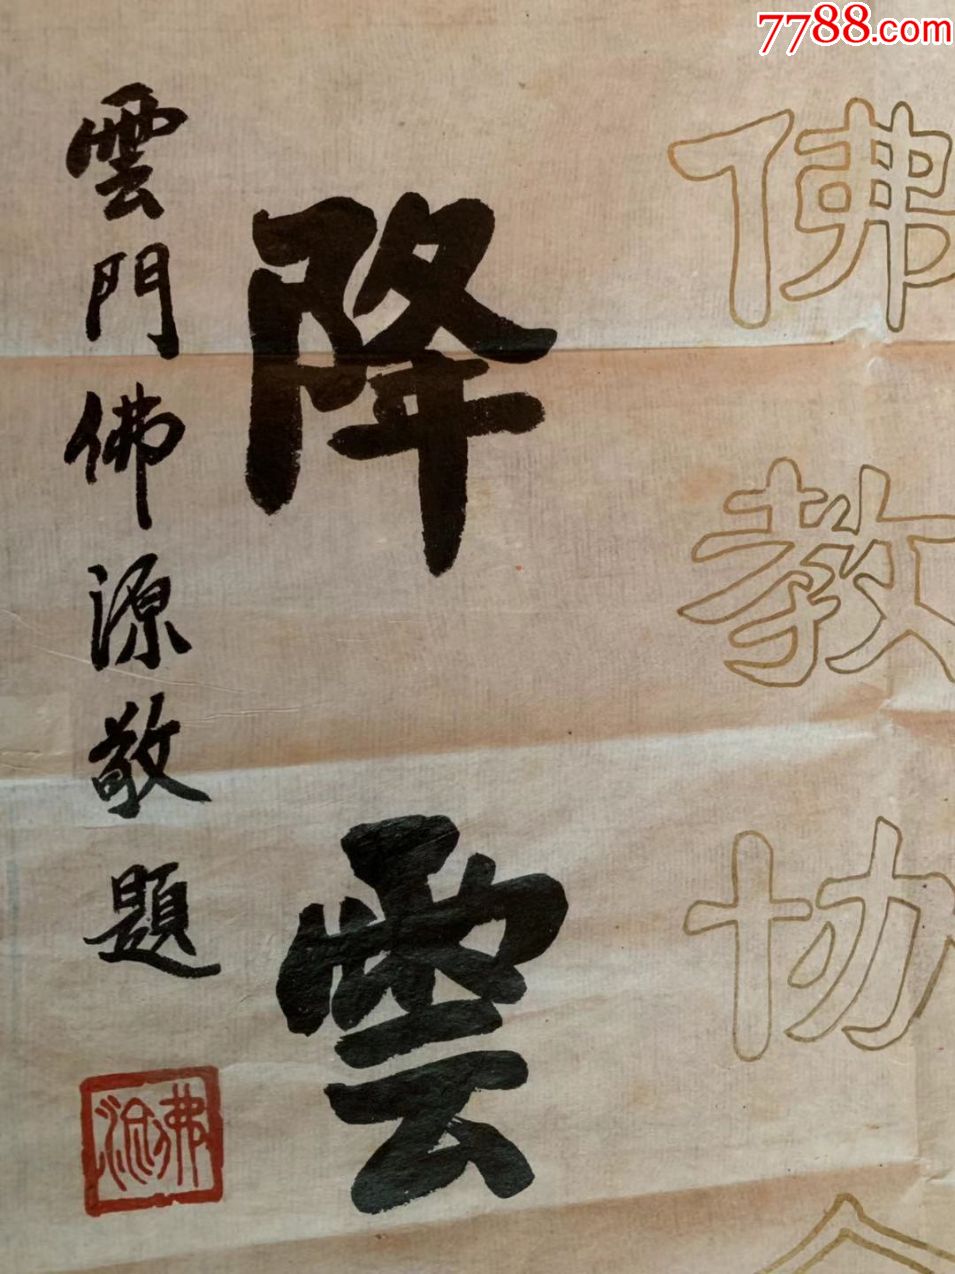 7788.com
佛教协会
降雲
雲門佛源敬題
佛源